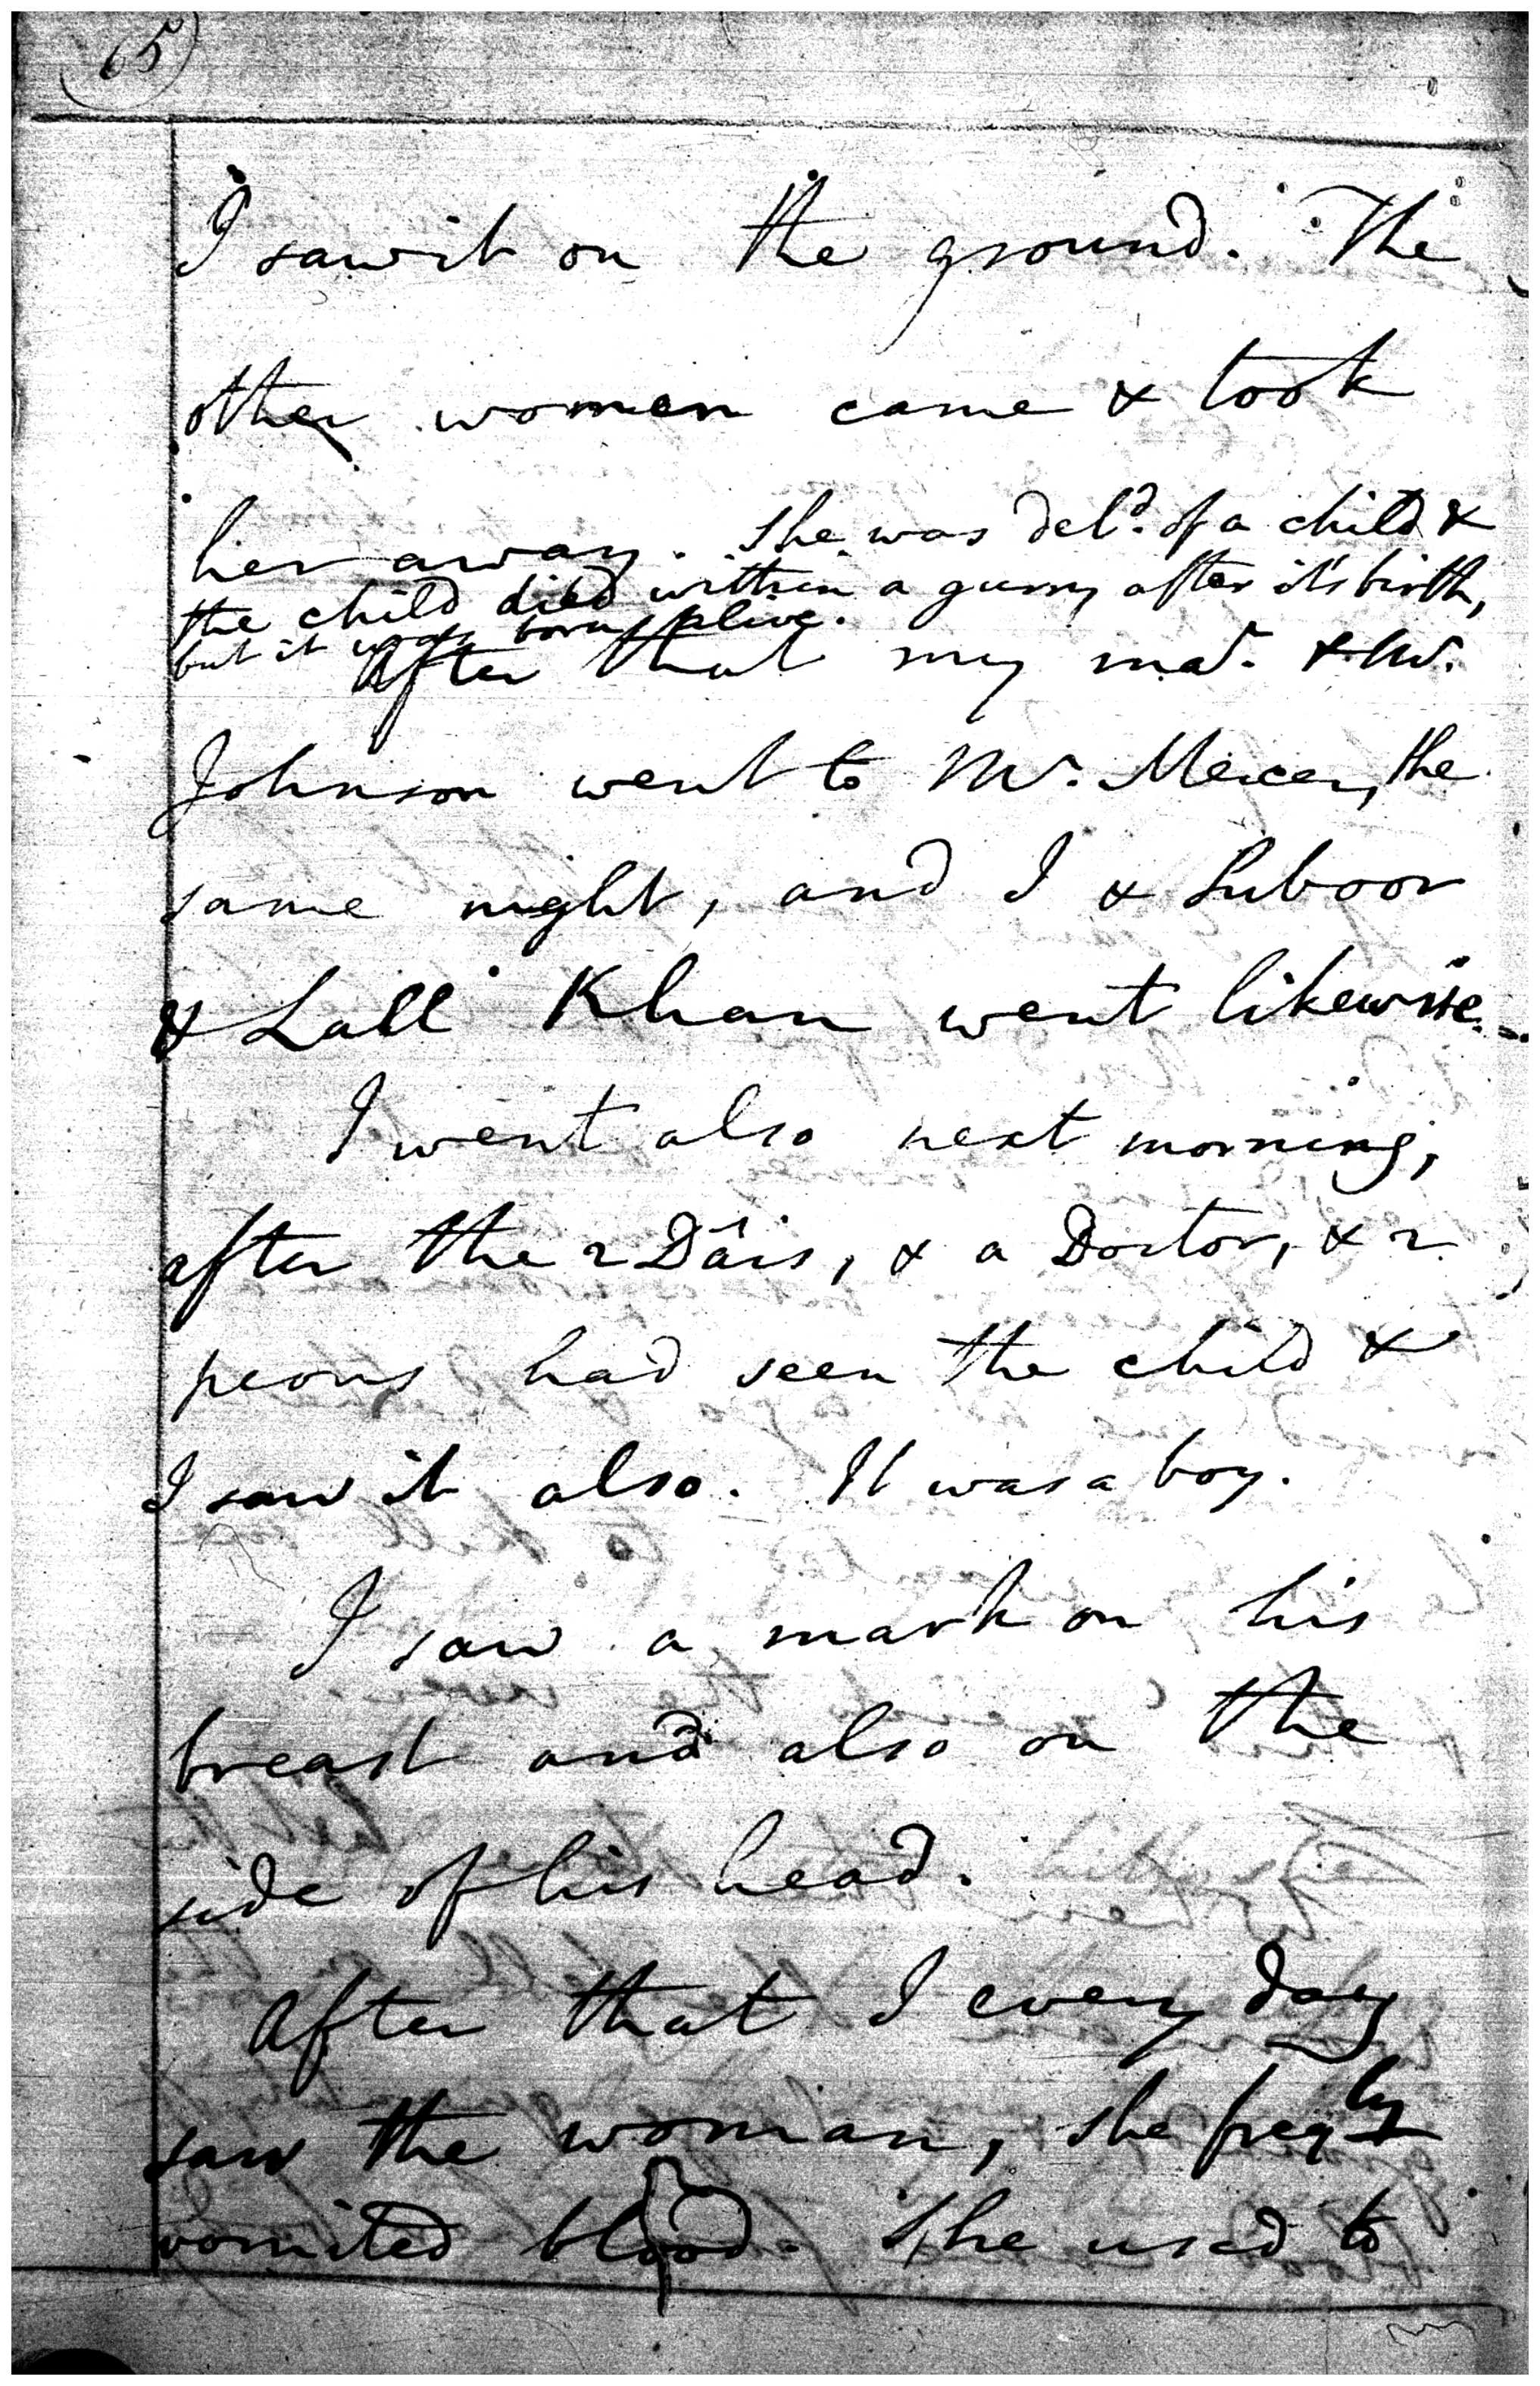 65
I saw it on the ground. The
other women came & took
her away. She was deld. of a child &
the child died within a gurry after it's birth,
but it was born alive.
After that my mar. & Mr.
Johnson went to Mr. Mercer, the
same night, and I & Suboor
& Lall Khan went likewise.
I went also next morning,
after the 2 Dâis, & a Doctor, & 2
peons had seen the child &
I saw it also. It was a boy.
I saw a mark on his
breast and also on the
side of his head.
After that I every day
saw the woman, she freqly
vomited blood. She used to